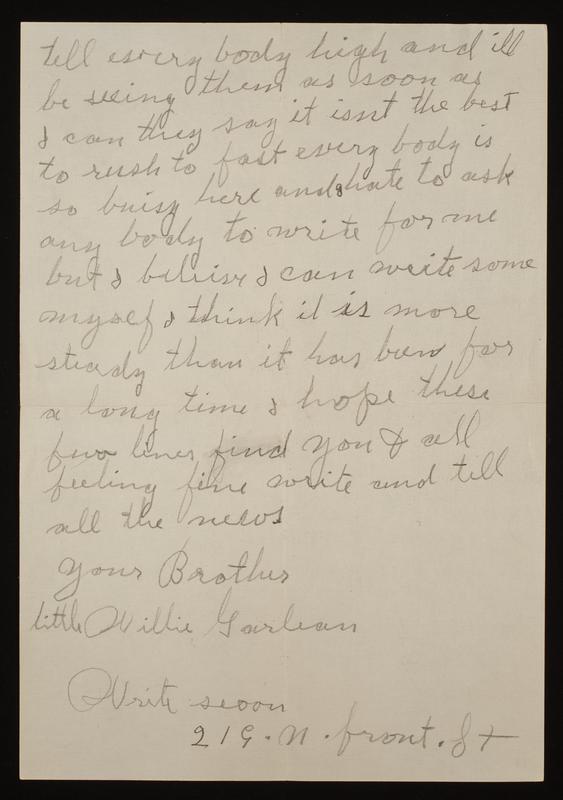 tell every body high and ill
be seeing them as soon as
I can they say it isnt the best
to rush to fast every body is
so buisy here and I hate to ask
any body to write for me
but I beleive I can write some
myself I think it is more
steady than it has been for
a long time I hope these
few lines find you & all
feeling fine write and tell
all the news
Your Brother
little Willie Garlean
Write seoon
219. N. front. St